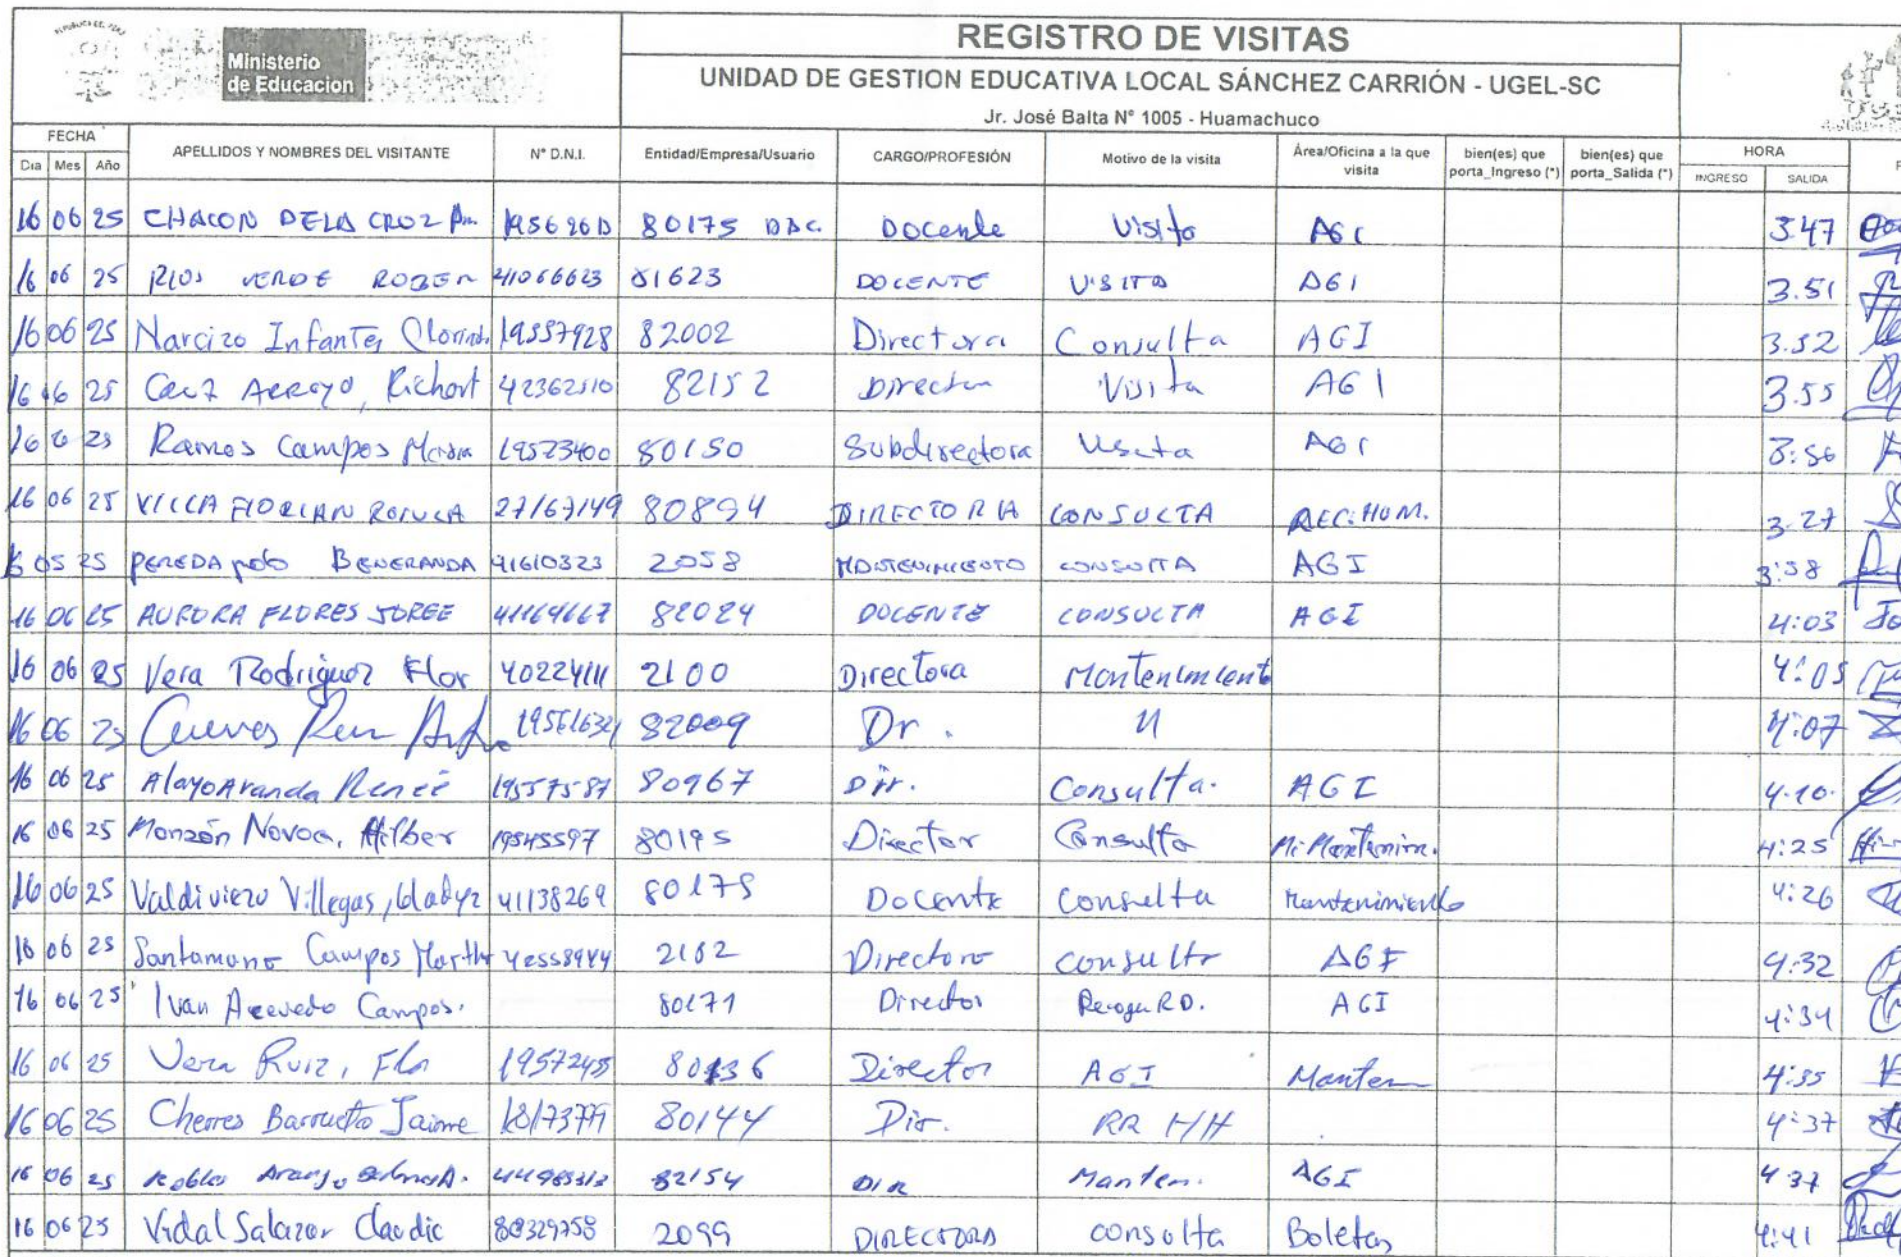 REPUBLICA DEL PERU
Ministerio de Educacion
REGISTRO DE VISITAS
UNIDAD DE GESTION EDUCATIVA LOCAL SÁNCHEZ CARRIÓN - UGEL-SC
Jr. José Balta N° 1005 - Huamachuco
FECHA APELLIDOS Y NOMBRES DEL VISITANTE N° D.N.I. Entidad/Empresa/Usuario CARGO/PROFESIÓN Motivo de la visita Área/Oficina a la que visita bien(es) que porta_Ingreso (*) bien(es) que porta_Salida (*) HORA
Dia Mes Año INGRESO SALIDA
16 06 25 CHACON DELA CROZ 80175 Docente Visita AGI 3.47
16 06 25 RIOS VERDE ROBER 41066623 81623 DOCENTE VISITA AGI 3.51
16 06 25 Narcizo Infantes 19557928 82002 Directora Consulta AGI 3.52
16 06 25 Cruz Arroyo, Richart 42362510 82152 Director Visita AGI 3.55
16 6 25 Ramos Campos 19523400 80150 Subdirectora Visita AGI 3:56
16 06 25 VILLA FLORIAN ROMULA 27167149 80894 DIRECTORIA CONSULTA REC. HUM. 3.27
05 25 PEREDA BENERANDA 41610323 2058 CONSULTA AGI 3:58
16 06 25 AURORA FLORES JORGE 41164667 82024 DOCENTE CONSULTA AGI 4:03
16 06 25 Vera Rodriguez Flor 40224111 2100 Directora Mantenimiento 4:05
16 06 25 Cuevas 82009 Dr. 4:07
16 06 25 Alayo Aranda Reneé 19557587 80967 Dir. Consulta. AGI 4.10.
16 06 25 Monzón Novoa, Hilber 19545597 80195 Director Consulta 4:25
16 06 25 Valdiviezo Villegas, Gladyz 41138269 80175 Docente Consulta Mantenimiento 4:26
16 06 25 Campos Martha 2182 Directora consulta AGI 4:32
16 06 25 Ivan Acevedo Campos. 80171 Director Recoger RD. AGI 4:34
16 06 25 Vera Ruiz, Flor 80136 Director AGI Manten 4:35
16 06 25 Cherres Barrueto Jaime 80144 Dir. RR HH 4:37
16 06 25 Robles 82154 DIR Manten. AGI 4 37
16 06 25 Vidal Salazar 80329758 2099 DIRECTORA consulta Boletas 4:41